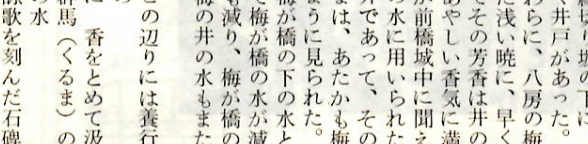 城下に
く井戸があった。
わらに、八房の梅
た浅い暁に、早く
てその芳香は井の
あやしい香気に満
が前橋城中に聞え
の水に用いられた
井であって、その
まは、あたかも梅
ように見られた。
梅が橋の下の水と
て梅が橋の水が減
も減り、梅が橋の
梅の井の水もまた
この辺りには養行
に 香をとめて汲
群馬（くるま）の
の水
詠歌を刻んだ石碑